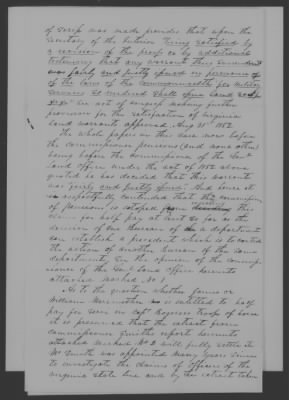 of scrip was made provides that upon the
Secretary of the Interior "being satisfied by
a revision of the proofs or by additional
testimony that any warrant thus surrendered
was fairly and justly issued in pursuance of
the laws of the commonwealth for military
services so rendered shall issue land scrip
&c" See act of congress making further
provision for the satisfaction of Virginia
land warrants approved Aug 31st 1852
The whole papers in this case now before
the commissioner pensions (and none other)
being before the commissioner of the Genl
Land Office under the act of 1852 above
quoted he has decided that this warrant
was fairly and justly issued. And hence it
is respectfully contended that the commissioner
of Pensions is estopped from
claim for half pay at least so far as the
decision of one bureau of a department
can establish a precedent which is to control
the action of another bureau of the same
department, See the opinion of the commiss-
ioner of the Genl Land Office herewith
attached marked No 1
As to the question whether James or
William is entitled to half
pay for serv in Capt Rogers Troop of horse
it is presumed that the extract from
Commissioner Smiths report herewith
attached marked No 2 will fully settle it
Mr Smith was appointed many years since
to investigate the claims of officers of the
Virginia State line and by the extract taken